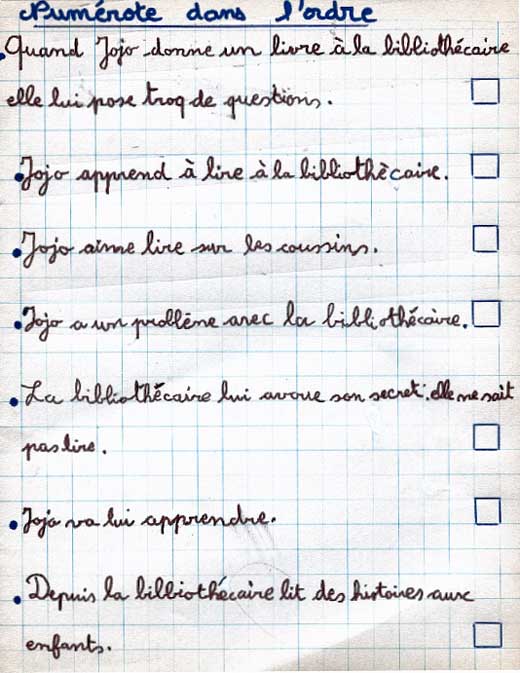 Numérote dans l'ordre
.Quand Jojo donne un livre à la bibliothécaire
elle lui pose troq de questions.
•Jojo apprend à lire à la bibliothècaire.
•Jojo aime lire sur les coussins.
•Jojo a un problème avec la bibliothécaire.
•La bibliothécaire lui avoue son secret: elle ne sait
pas lire.
•Jojo va lui apprendre.
•Depuis la bilbiothécaire lit des histoires aux
enfants.